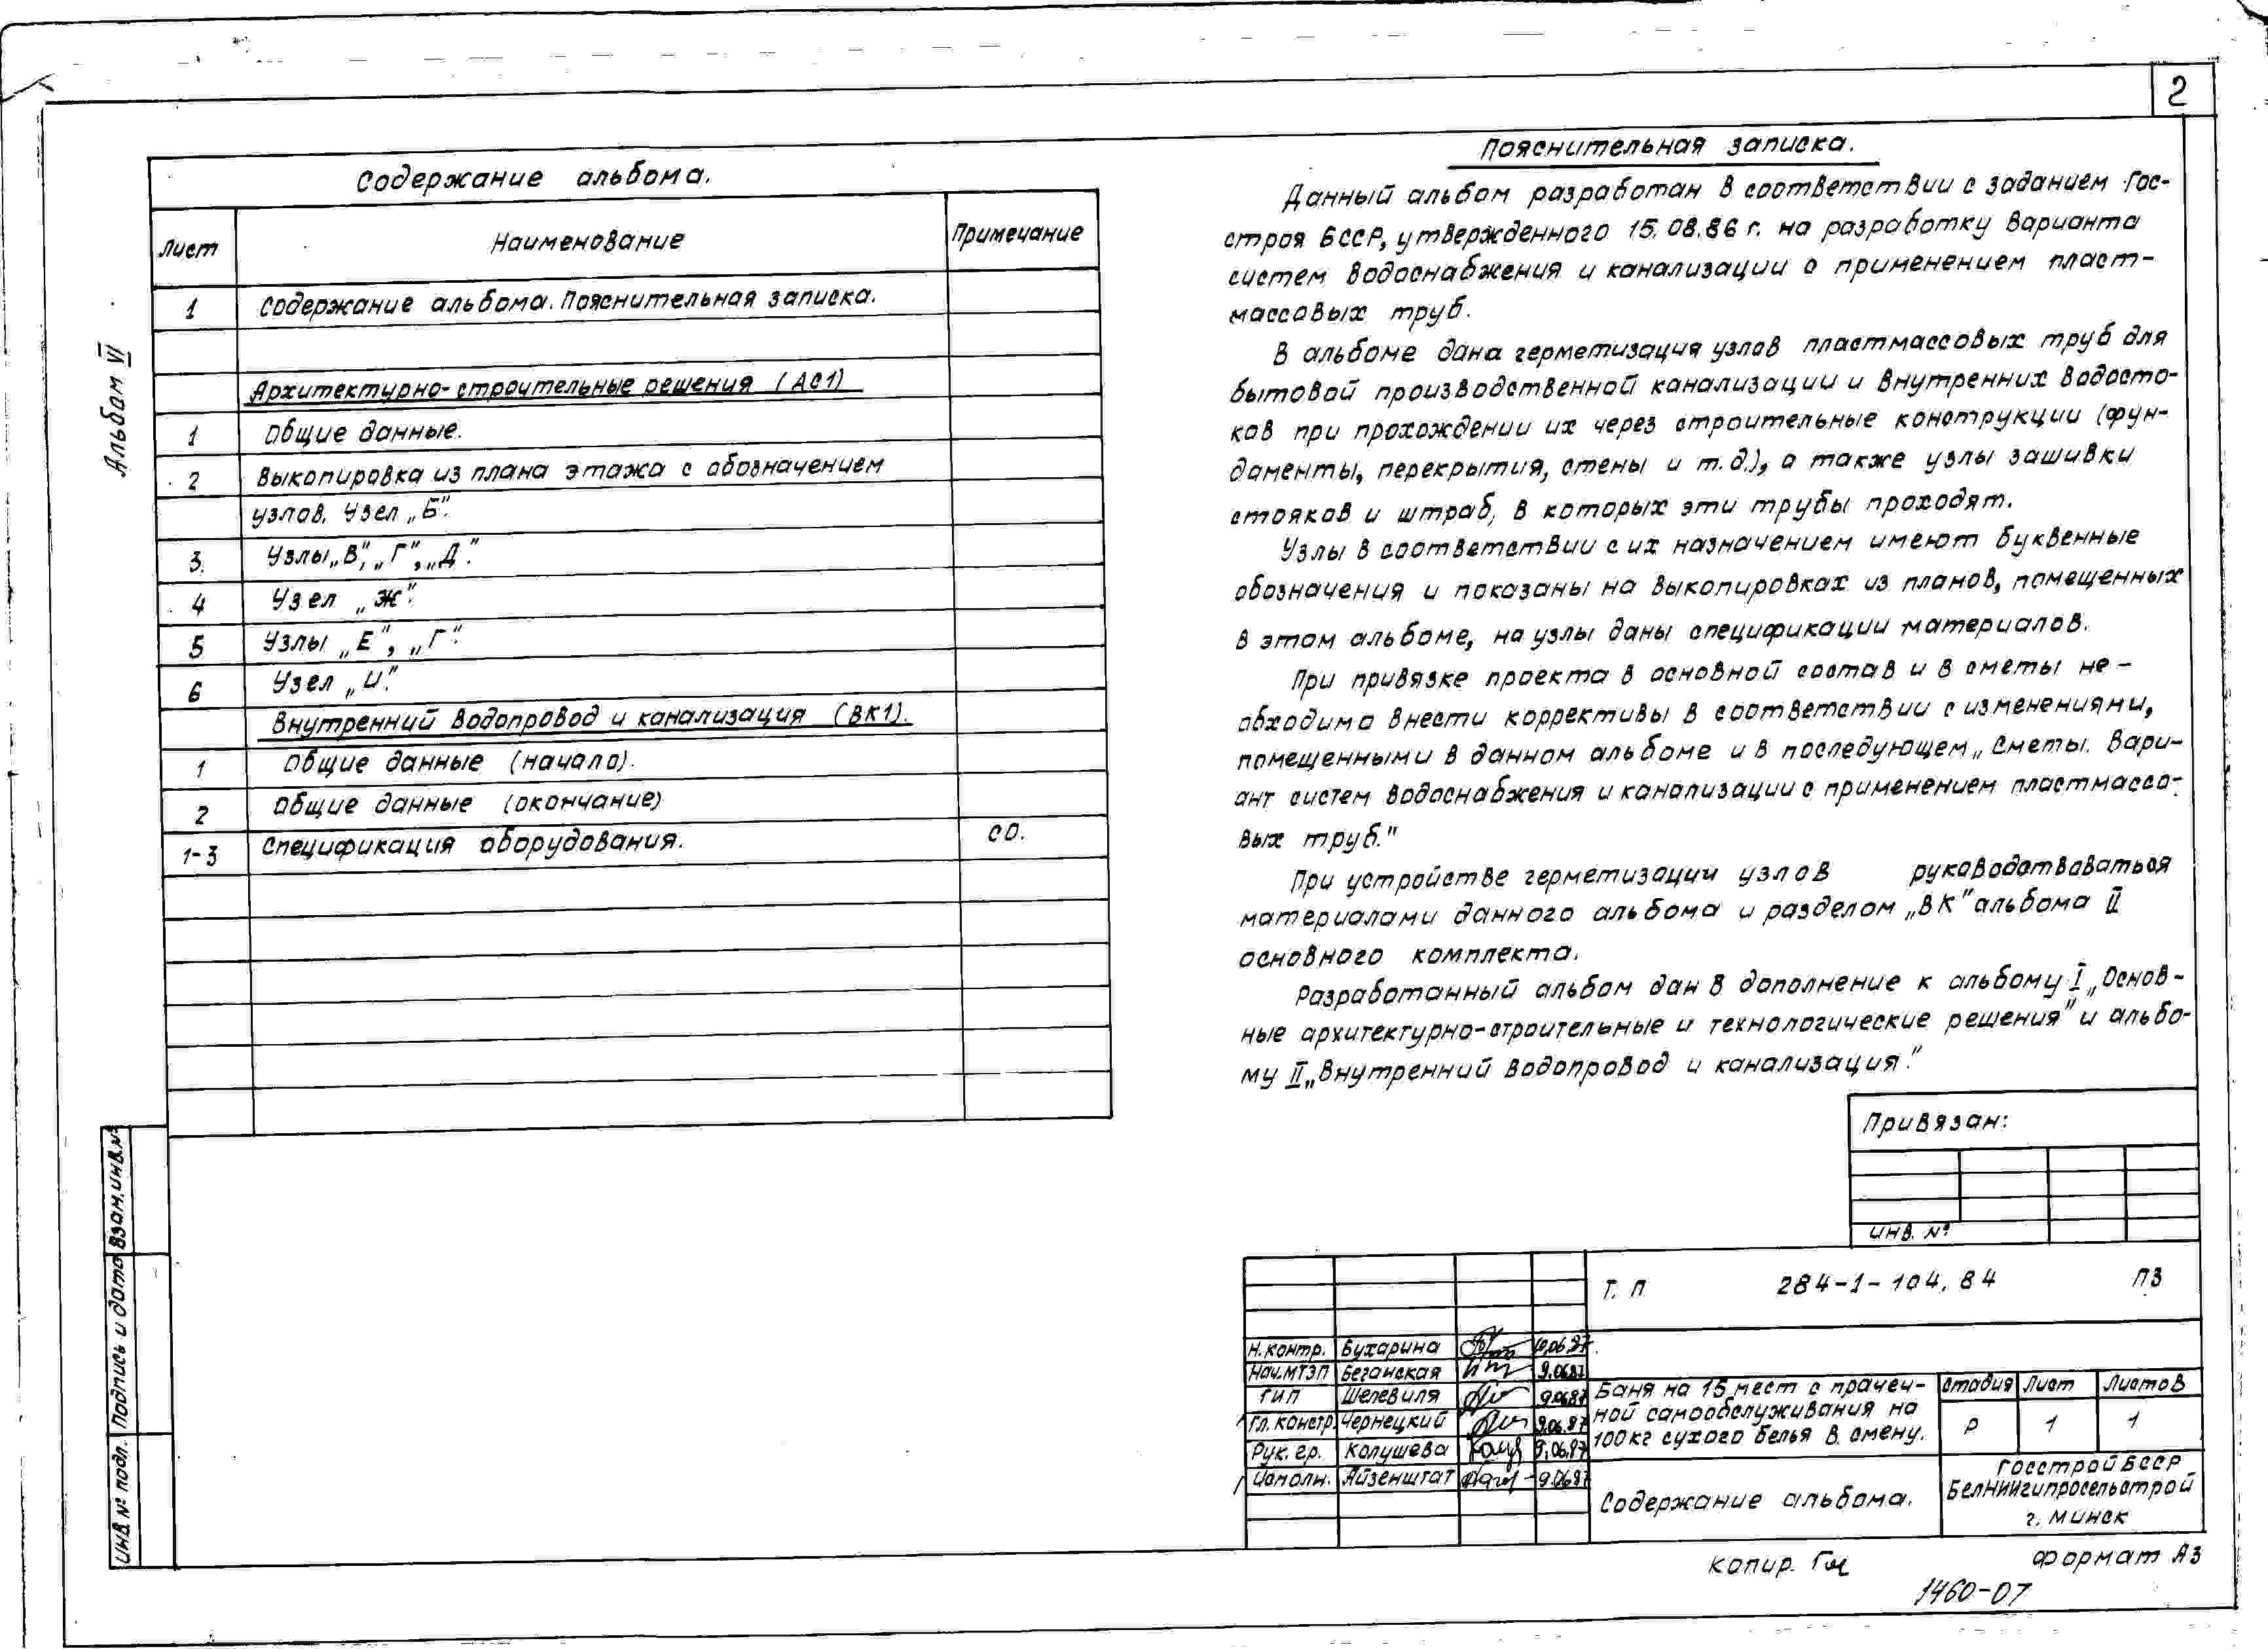 2
Альбом VI
Содержание альбома.
Лист Наименование Примечание
1 Содержание альбома. Пояснительная записка.
Архитектурно-строительные решения (АС1)
1 Общие данные.
2 Выкопировка из плана этажа с обозначением
узлов. Узел „Б".
3. Узлы „В", „Г", „Д".
4 Узел „Ж".
5 Узлы „Е", „Г".
6 Узел „И".
Внутренний водопровод и канализация (ВК1).
1 Общие данные (начало).
2 Общие данные (окончание)
1-3 Спецификация оборудования. СО.
Пояснительная записка.
Данный альбом разработан в соответствии с заданием Гос-
строя БССР, утвержденного 15.08.86 г. на разработку варианта
систем водоснабжения и канализации с применением пласт-
массовых труб.
В альбоме дана герметизация узлов пластмассовых труб для
бытовой производственной канализации и внутренних водосто-
ков при прохождении их через строительные конструкции (фун-
даменты, перекрытия, стены и т.д.), а также узлы зашивки
стояков и штраб, в которых эти трубы проходят.
Узлы в соответствии с их назначением имеют буквенные
обозначения и показаны на выкопировках из планов, помещенных
в этом альбоме, на узлы даны спецификации материалов.
При привязке проекта в основной состав и в сметы не-
обходимо внести коррективы в соответствии с изменениями,
помещенными в данном альбоме и в последующем „Сметы. Вари-
ант систем водоснабжения и канализации с применением пластмассо-
вых труб."
При устройстве герметизации узлов руководствоваться
материалами данного альбома и разделом „ВК" альбома II
основного комплекта.
Разработанный альбом дан в дополнение к альбому I „Основ-
ные архитектурно-строительные и технологические решения" и альбо-
му II „Внутренний водопровод и канализация".
Привязан:
Инв. №
Т. П 284-1-104.84 ПЗ
Н.контр. Бухарина 10.06.87
Нач.МТЭП Беганская 9.06.87
ГИП Шелевиля 9.06.87
Гл. констр. Чернецкий 9.06.87
Рук. гр. Колушева 9.06.87
Исполн. Айзенштат 9.06.87
Баня на 15 мест с прачеч-
ной самообслуживания на
100кг сухого белья в смену.
Стадия Лист Листов
Р 1 1
Содержание альбома.
Госстрой БССР
БелНИИгипросельстрой
г. Минск
Взам.инв.№
Подпись и дата
Инв № подл.
Копир. Формат А3
1460-07